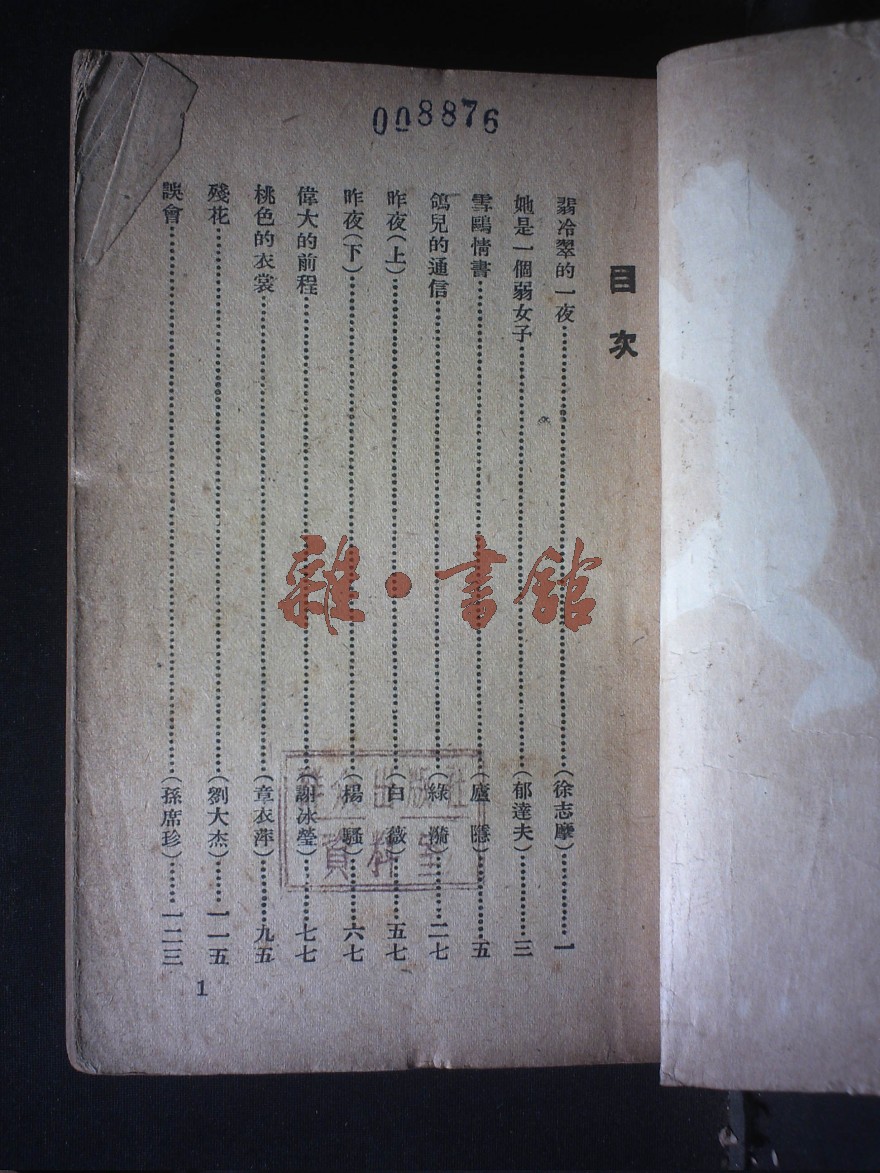 008876
目次
翡冷翠的一夜……(徐志摩)……一
她是一個弱女子……(郁達夫)……三
雲鷗情書……(廬隱)……五
鴿兒的通信……(綠漪)……二七
昨夜(上)……(白薇)……五七
昨夜(下)……(楊騷)……六七
偉大的前程……(謝冰瑩)……七七
桃色的衣裳……(章衣萍)……九五
殘花……(劉大杰)……一一五
誤會……(孫席珍)……一二三
1
雜·書館
出版社
資料室